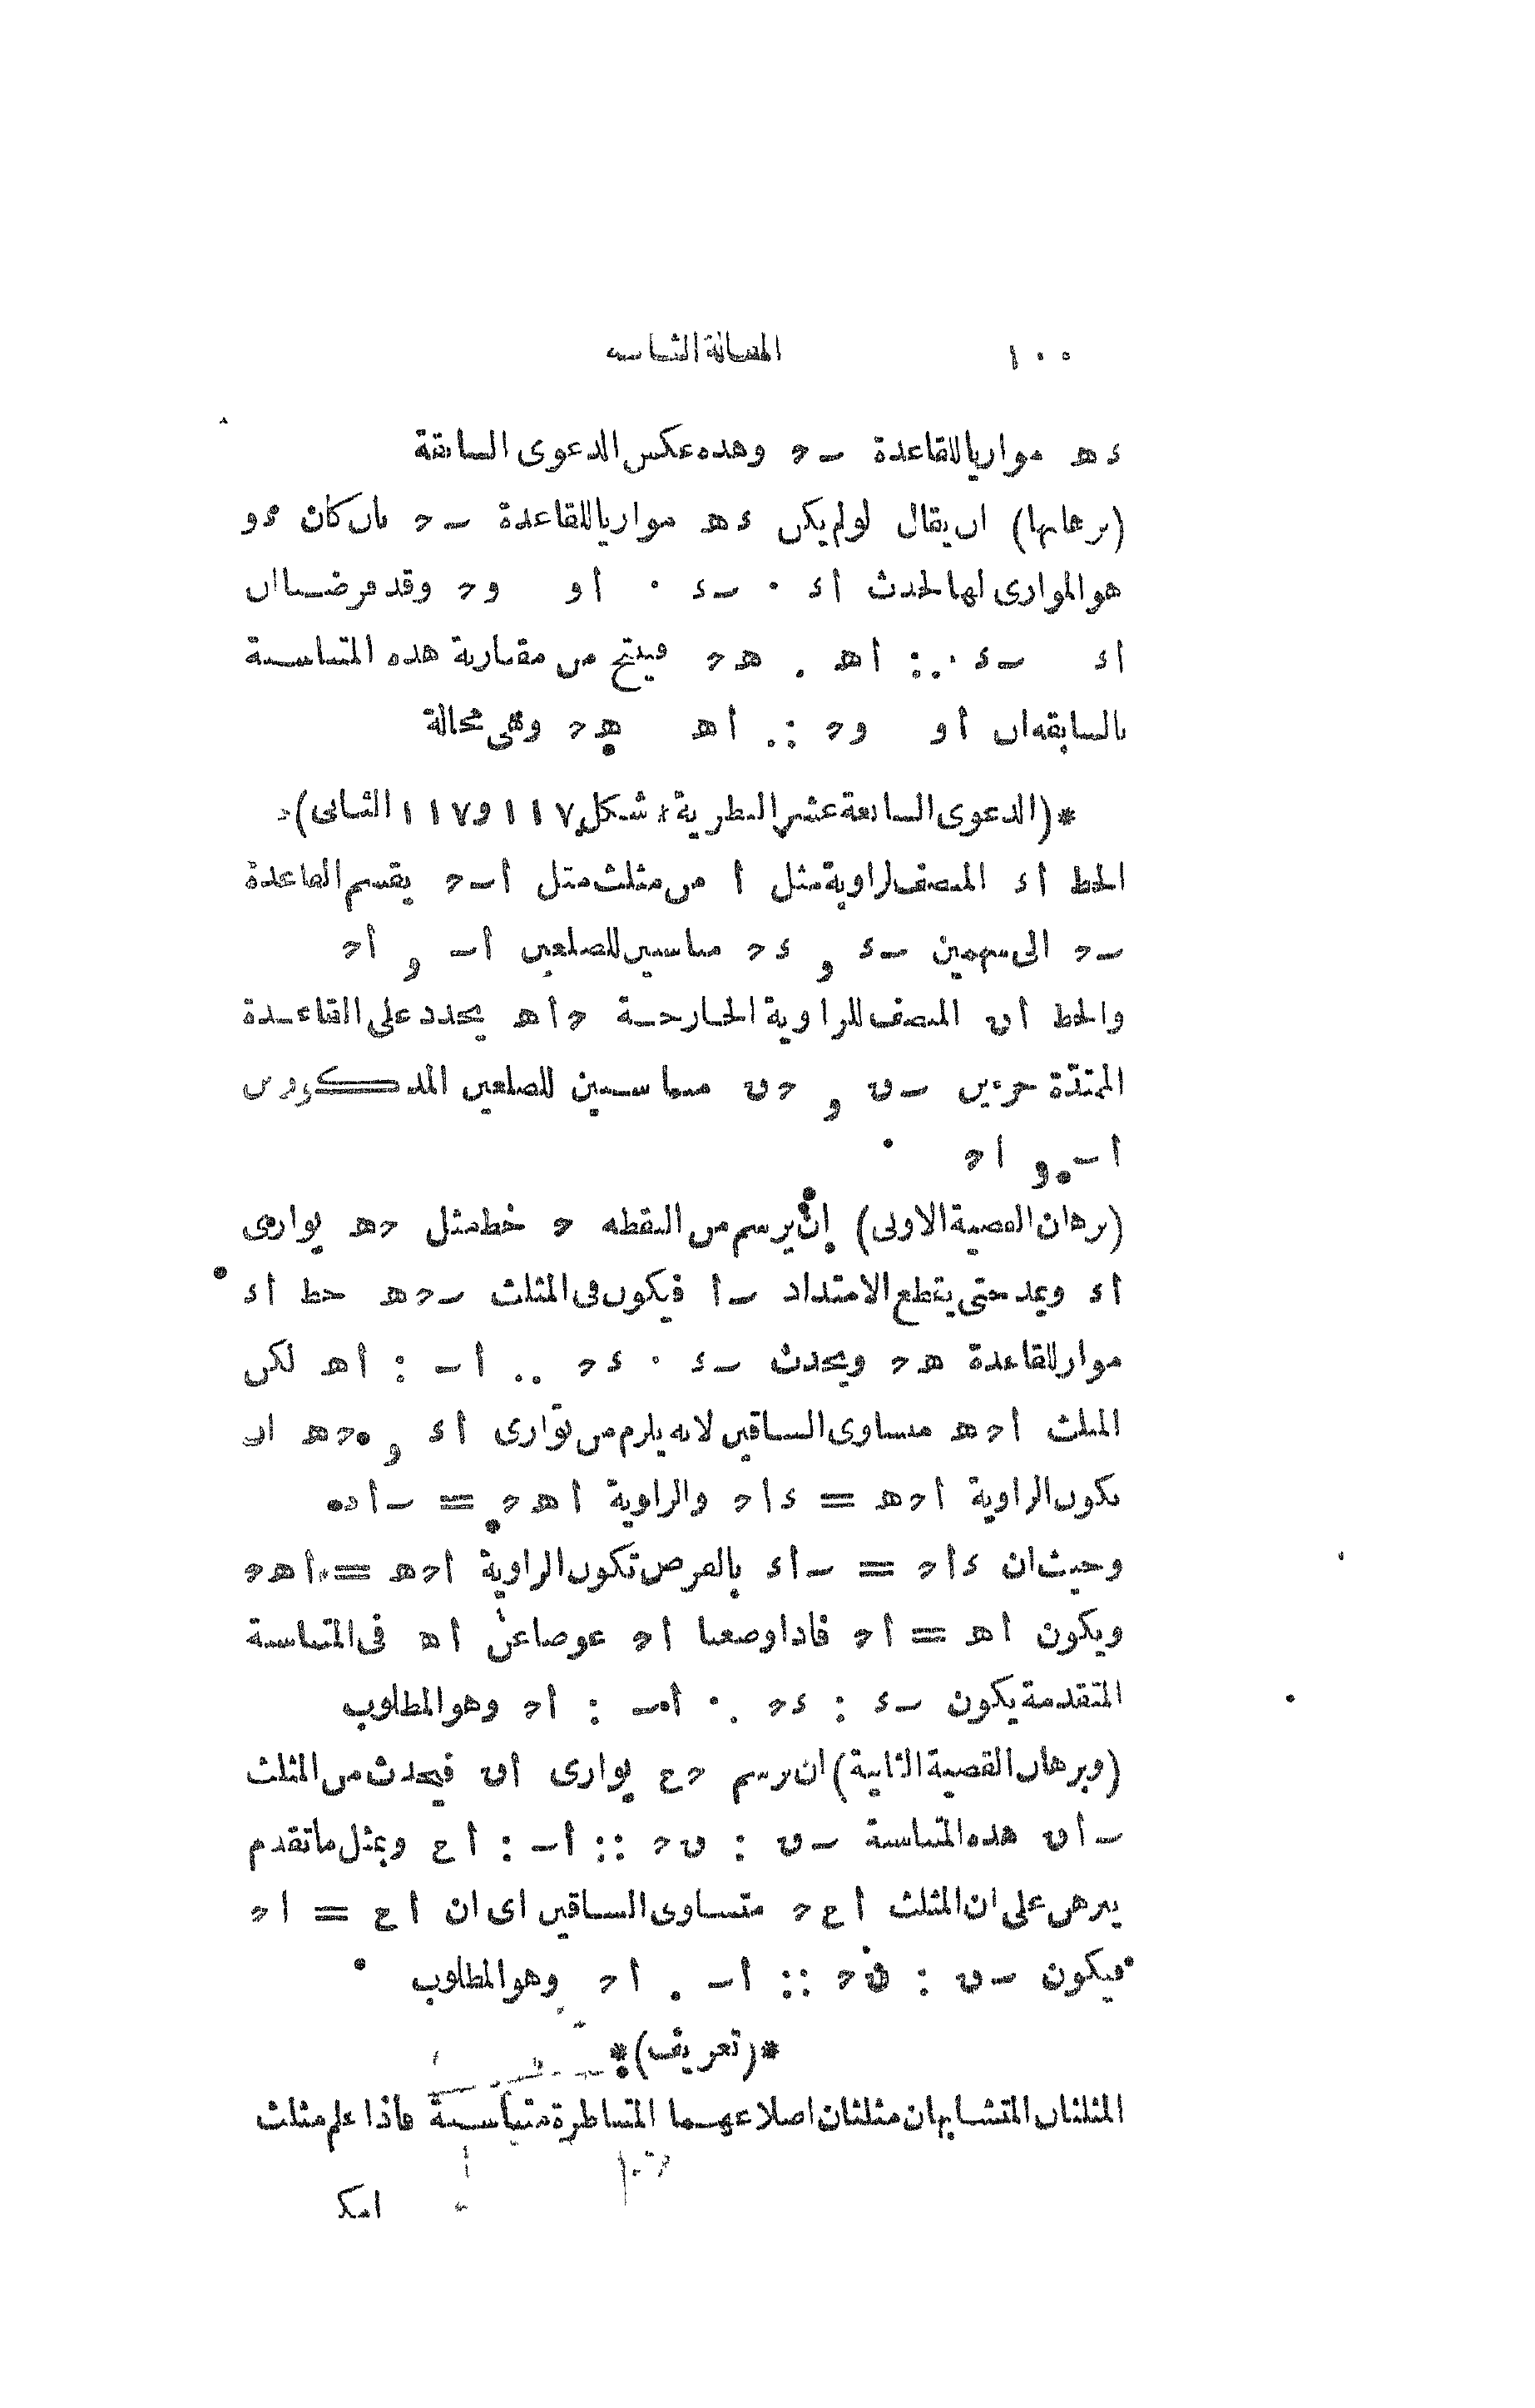 ١٠٥ المقالة الثامنة
ء ه موازيا للقاعدة ب ح وهذه عكس الدعوى السابقة
(برهانها) ان يقال لو لم يكن ء ه موازيا للقاعدة ب ح بان كان ء و
هو الموازى لها لحدث أ ء : ب ء :: أ و : و ح وقد فرضنا ان
أ ء : ب ء :: أ ه : ه ح فينتج من مقارنة هذه المتناسبة
بالسابقه ان أ و : و ح :: أ ه : ه ح وهى محالة
*(الدعوى السابعة عشر النظرية شكل ١١٧ و ١١٧ الثانى)*
الخط أ ء المنصف لزاوية مثل أ من مثلث مثل أ ب ح يقسم القاعدة
ب ح الى سهمين ب ء و ء ح مناسبين للضلعين أ ب و أ ح
والخط أ ن المنصف للزاوية الخارجة ح أ ه يحدد على القاعدة
الممتدّة جزءين ب ن و ح ن مناسبين للضلعين المذكورين
أ ب و أ ح
(برهان القضية الاولى) ان يرسم من النقطه ح خط مثل ح ه يوازى
أ ء ويمد حتى يقطع الامتداد ب أ فيكون فى المثلث ب ح ه خط أ ء
مواز للقاعدة ه ح ويحدث ب ء : ء ح :: أ ب : أ ه لكن
المثلث أ ح ه متساوى الساقين لانه يلزم من توازى أ ء و ح ه ان
تكون الزاوية أ ح ه = ء أ ح والزاوية أ ه ح = ب أ ء
وحيث ان ء أ ح = ب أ ء بالفرض تكون الزاوية أ ح ه = أ ه ح
ويكون أ ه = أ ح فاذا وضعنا أ ح عوضا عن أ ه فى المتناسبة
المتقدمة يكون ب ء : ء ح :: أ ب : أ ح وهو المطلوب
(وبرهان القضية الثانية) ان يرسم ح ع يوازى أ ن فيحدث من المثلث
ب أ ن هذه المتناسبة ب ن : ن ح :: أ ب : أ ع وبمثل ما تقدم
يبرهن على ان المثلث أ ع ح متساوى الساقين اى ان أ ع = أ ح
فيكون ب ن : ن ح :: أ ب : أ ح وهو المطلوب
*(تعريف)*
المثلثان المتشابهان مثلثان اضلاعهما المتناظرة متناسبة فاذا علم مثلث
امكن